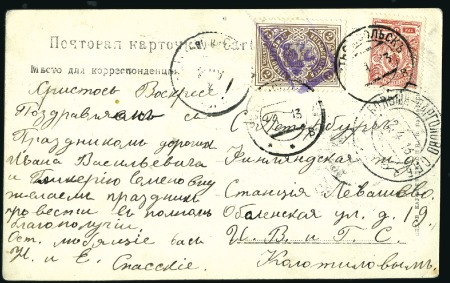 Почтовая карточка. Carte
Мѣсто для корреспонденціи
Христосъ Воскресе
Поздравляемъ съ
Праздникомъ дорогихъ
Ивана Васильевича
и Гликерію Семеновну
желаемъ праздникъ
провести въ полномъ
благополучіи.
Ост. любящіе васъ
И. и Е. Спасскіе.
С. Петербургъ
Финляндская ж. д.
Станція Левашово.
Оболенская ул. д. 19.
И. В. и Г. С.
Колотиловымъ.
13